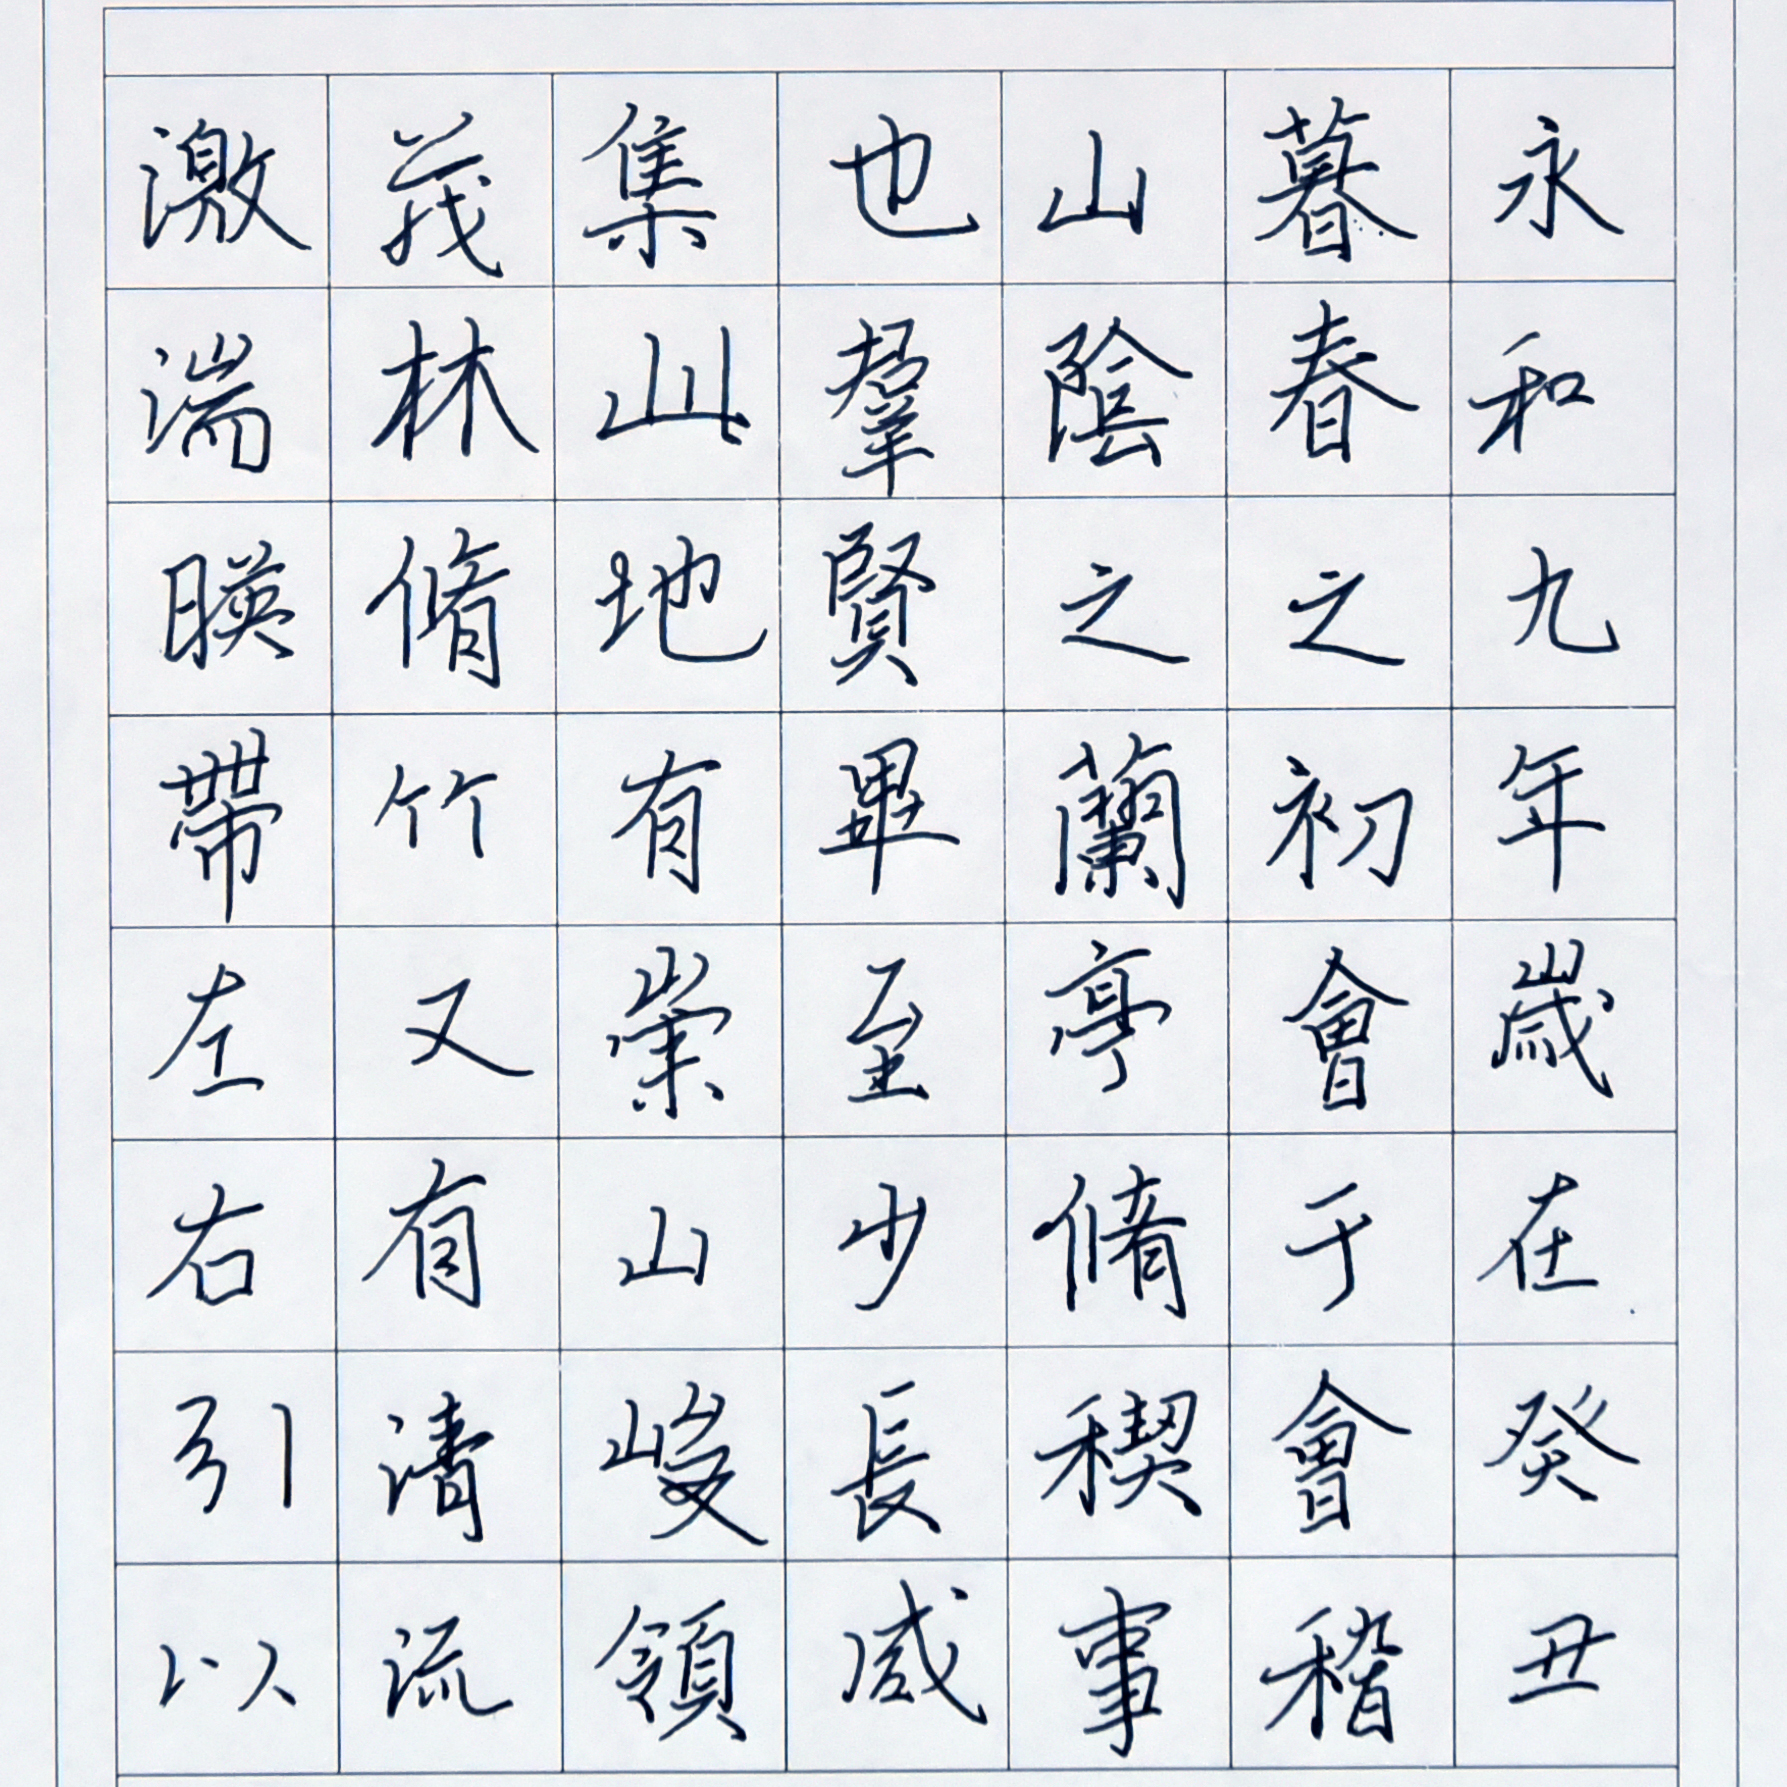 永和九年歲在癸丑
暮春之初會于會稽
山陰之蘭亭脩稧事
也羣賢畢至少長咸
集此地有崇山峻領
茂林脩竹又有清流
激湍暎帶左右引以